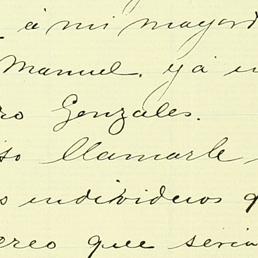 á mi mayord
Manuel. yá
ro Gonzales.
so llamarle
s individuos q
creo que seria